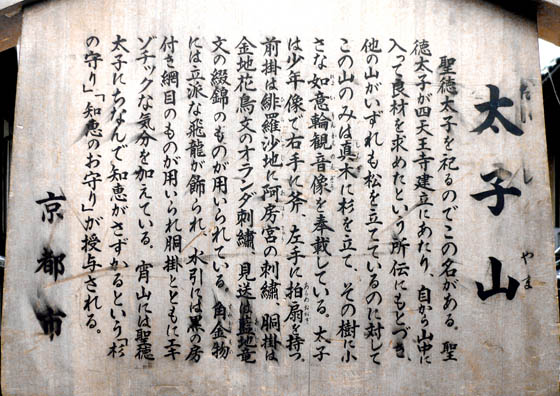 太子山
たいし やま
聖徳太子を祀るのでこの名がある。聖
徳太子が四天王寺建立にあたり、自から山中に
入って良材を求めたという所伝にもとづき、
他の山がいずれも松を立てているのに対して
この山のみは真木に杉を立て、その樹に小
さな如意輪観音像を奉載している。太子
は少年像で右手に斧、左手に拍扇を持つ。
前掛は緋羅沙地に阿房宮の刺繍、胴掛は
金地花鳥文のオランダ刺繍、見送は藍地竜
文の綴錦のものが用いられている。角金物
には立派な飛龍が飾られ、水引には黒の房
付き網目のものが用いられ胴掛とともにエキ
ゾチックな気分を加えている。宵山には聖徳
太子にちなんで知恵がさずかるという「杉
の守り」「知恵のお守り」が授与される。
京都市